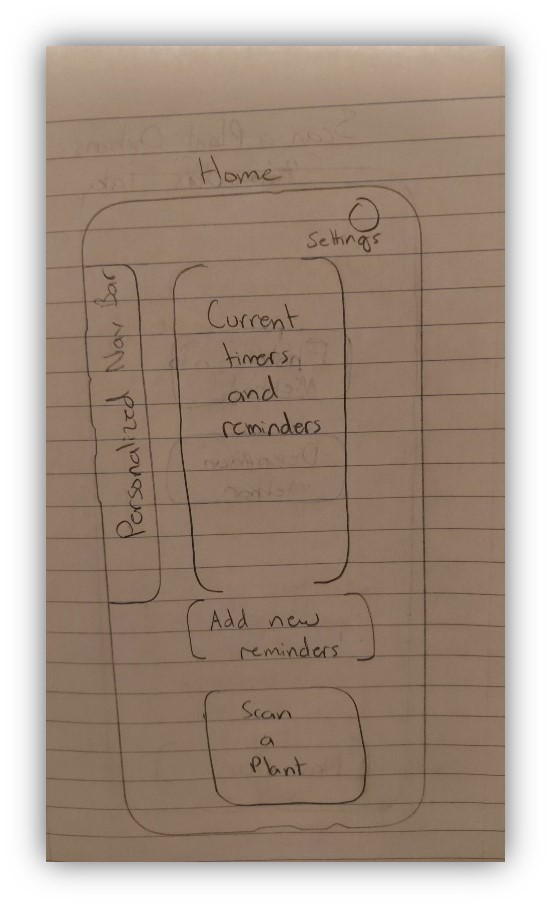 Home
Settings
Personalized Nav Bar
Current
timers
and
reminders
Add new
reminders
Scan
a
Plant